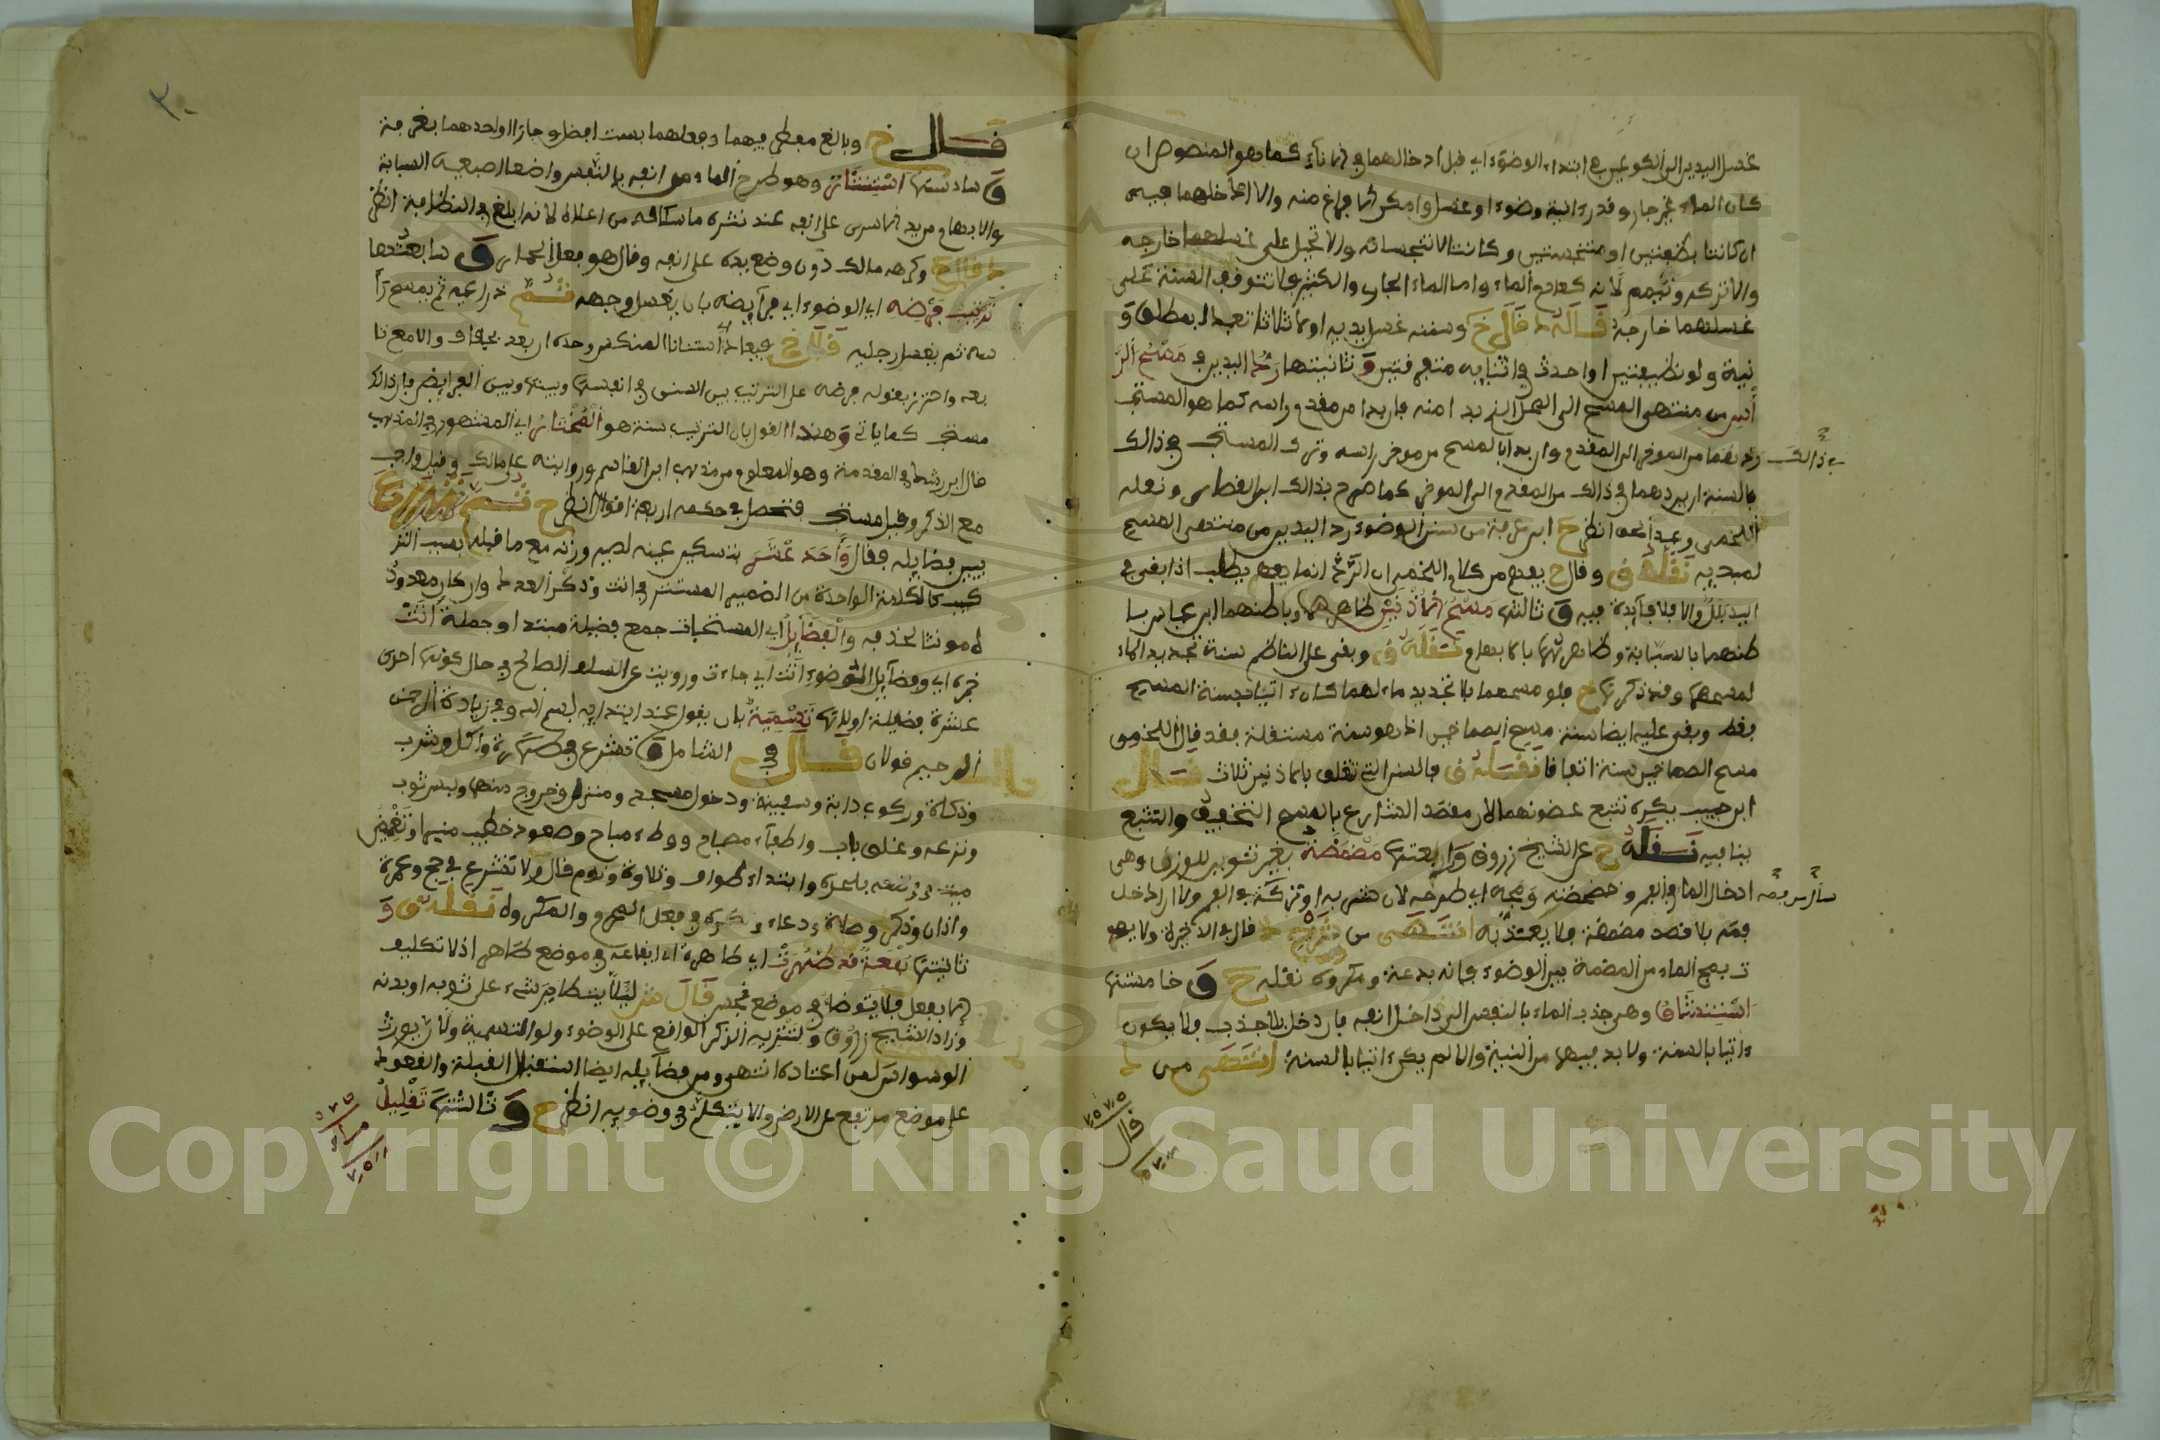 غسل اليدين الى الكوعين في ابتداء الوضوء اي قبل ادخالهما في الاناء كما هو المنصوص ان
كان الماء غير جار وقدر انية وضوء او غسل وامكن الافراغ منه والا ادخلهما فيه
ان كانتا نظيفتين او متنجستين وكانتا لا تنجسانه والا تحيل على غسلهما خارجه
والا تركه وتيمم لانه كعادم الماء واما الماء الجاري والكثير فلا تتوقف السنة على
غسلهما خارجه قاله ط قال خ وسننه غسل يديه اولا ثلاثا تعبدا بمطلق و
نية ولو نظيفتين او احدث في اثنائه مفترقتين و ثانيتها رد اليدين في مسح الر
أس من منتهى المسح الى المحل الذي بدا منه فان بدا من مقدم راسه كما هو المستحب
ردهما من المؤخر الى المقدم وان بدا بالمسح من مؤخر راسه وترك المستحب في ذالك
في ذالك
فالسنة ان يردهما في ذالك من المقدم الى المؤخر كما صرح بذالك ابن القصار ونقله
اللخمي وعبد الحق انظر ح ابن عرفة من سنن الوضوء رد اليدين من منتهى المسح
لمبديه نقله ق وقال ح يفهم من كلام اللخمي ان الرد انما يطلب اذا بقي في
اليد بلل والا فلا فايدة فيه و ثالثتها مسح الاذنين ظاهرهما وباطنهما ابن عباس با
طنهما بالسبابة وظاهرهما بالابهام نقله ق وبقي على الناظم سنة تجديد الماء
لمسحهما وقد ذكرها خ فلو مسحهما بلا تجديد ماء لهما كان اتيا بسنة المسح
فقط وبقي عليه ايضا سنة مسح الصماخين اذ هو سنة مستقلة فقد قال اللخمي
مسح الصماخين سنة اتفاقا نقله ق فالسنن التي تتعلق بالاذنين ثلاث قال
ابن حبيب يكره تتبع غضونهما لان مقصد الشارع بالمسح التخفيف والتتبع
ينافيه نقله ح عن الشيخ زروق و رابعتها مضمضة بغير تنوين للوزن وهي
ادخال الماء في الفم وخضخضته ومجه اي طرحه لا ان شربه او تركه في الفم ولا ان ادخل
فمه بلا قصد مضمضة فلا يعتد به انتهى من ط قال في الاخيرة ولا
في مج الماء من المضمضة بين الوضوء فانه بدعة ومكروه نقله ح و خامستها
استنشاق وهو جذب الماء بالنفس الى داخل انفه فان دخل بلا جذب فلا يكون
اتيا بالسنة ولا بد فيهما من النية والا لم يكن اتيا بالسنة انتهى من ط
قال
٣٠
قال خ وبالغ مفطر فيهما وفعلهما بست افضل وجازا او احدهما بغرفة
و سادستها استنثار وهو طرح الماء من انفه بالنفس واضعا اصبعيه السبابة
ط قال ح وكرهه مالك دون وضع يده على انفه وقال هو فعل الحمار و سابعتها
ترتيب فرضه اي الوضوء اي فرائضه بان يغسل وجهه ثم ذراعيه ثم يمسح را
سه ثم يغسل رجليه قال خ فيعاد المنكس وحده ان بعد بجفاف والا مع تا
بعه واحترز بقوله فرضه على الترتيب بين السنن في انفسها وبينها وبين الفرايض فان ذالك
مستحب كما ياتي و هذا القول بان الترتيب سنة هو المختار اي المشهور في المذهب
قال ابن رشد في المقدمة وهو المعلوم من مذهب ابن القاسم وروايته عن مالك وقيل واجب
مع الذكر وقيل مستحب فتحصل في حكمه اربعة اقوال انظر ح ثم شرع
يبين فضايله فقال واحد عشر بتسكين عينه لضيق وزنه مع ما قبله بسبب التر
كيب كالكلمة الواحدة من الضمير المستتر في اتت وذكر العدد وان كان معدود
ه مونثا لحذفه والفضايل اي المستحبات جمع فضيلة مبتدا وجملة اتت
خبره اي وفضايل الوضوء اتت اي جاءت ورويت عن السلف الصالح في حال كونها احدى
عشرة فضيلة اولاها تسمية بان يقول عند ابتدايه بسم الله وفي زيادة الرحمن
الرحيم قولان قال في الشامل و تشرع في طهارة واكل وشرب
وذكاة وركوب دابة وسفينة ودخول مسجد ومنزل وخروج منهما ولبس ثوب
ونزعه وغلق باب واطفاء مصباح ووطء مباح وصعود خطيب منبرا وتغميض
ميت ووضعه بلحده وابتداء طواف وتلاوة ونوم قال ولا تشرع في حج وعمرة
واذان وذكر وصلاة ودعاء وتكره في فعل المحرم والمكروه نقله ق و
ثانيتها بقعة قد طهرت اي طاهرة اي ايقاعه في موضع طاهر
فلا يتوضا في موضع نجس قال ليلا يتطاير شيء على ثوبه او بدنه
وزاد الشيخ زروق ولتنزيه الذكر الواقع على الوضوء ولو التسمية ولان يورث
الوسواس لمن اعتاده انتهى ومن فضايله ايضا استقبال القبلة والقعود
على موضع مرتفع عن الارض والا يتكلم في وضويه انظر ح و ثالثتها تقليل